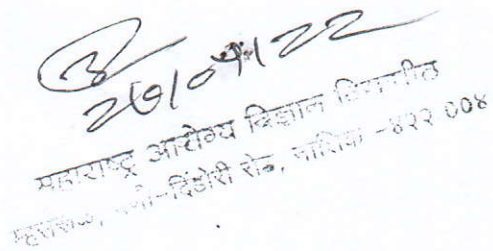 २७/०५/22
महाराष्ट्र आरोग्य विज्ञान विद्यापीठ
म्हसरूळ, दिंडोरी रोड, नाशिक -४२२ ००४